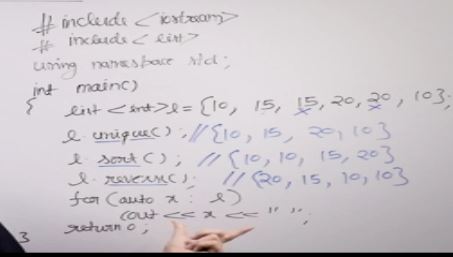 # include <iostream>
# include <list>
using namespace std;
int main()
{ list <int> l = {10, 15, 15, 20, 20, 10};
l. unique(); //{10, 15, 20, 10}
l. sort(); //{10, 10, 15, 20}
l. reverse(); //{20, 15, 10, 10}
for (auto x : l)
cout << x << " ";
return 0;
}